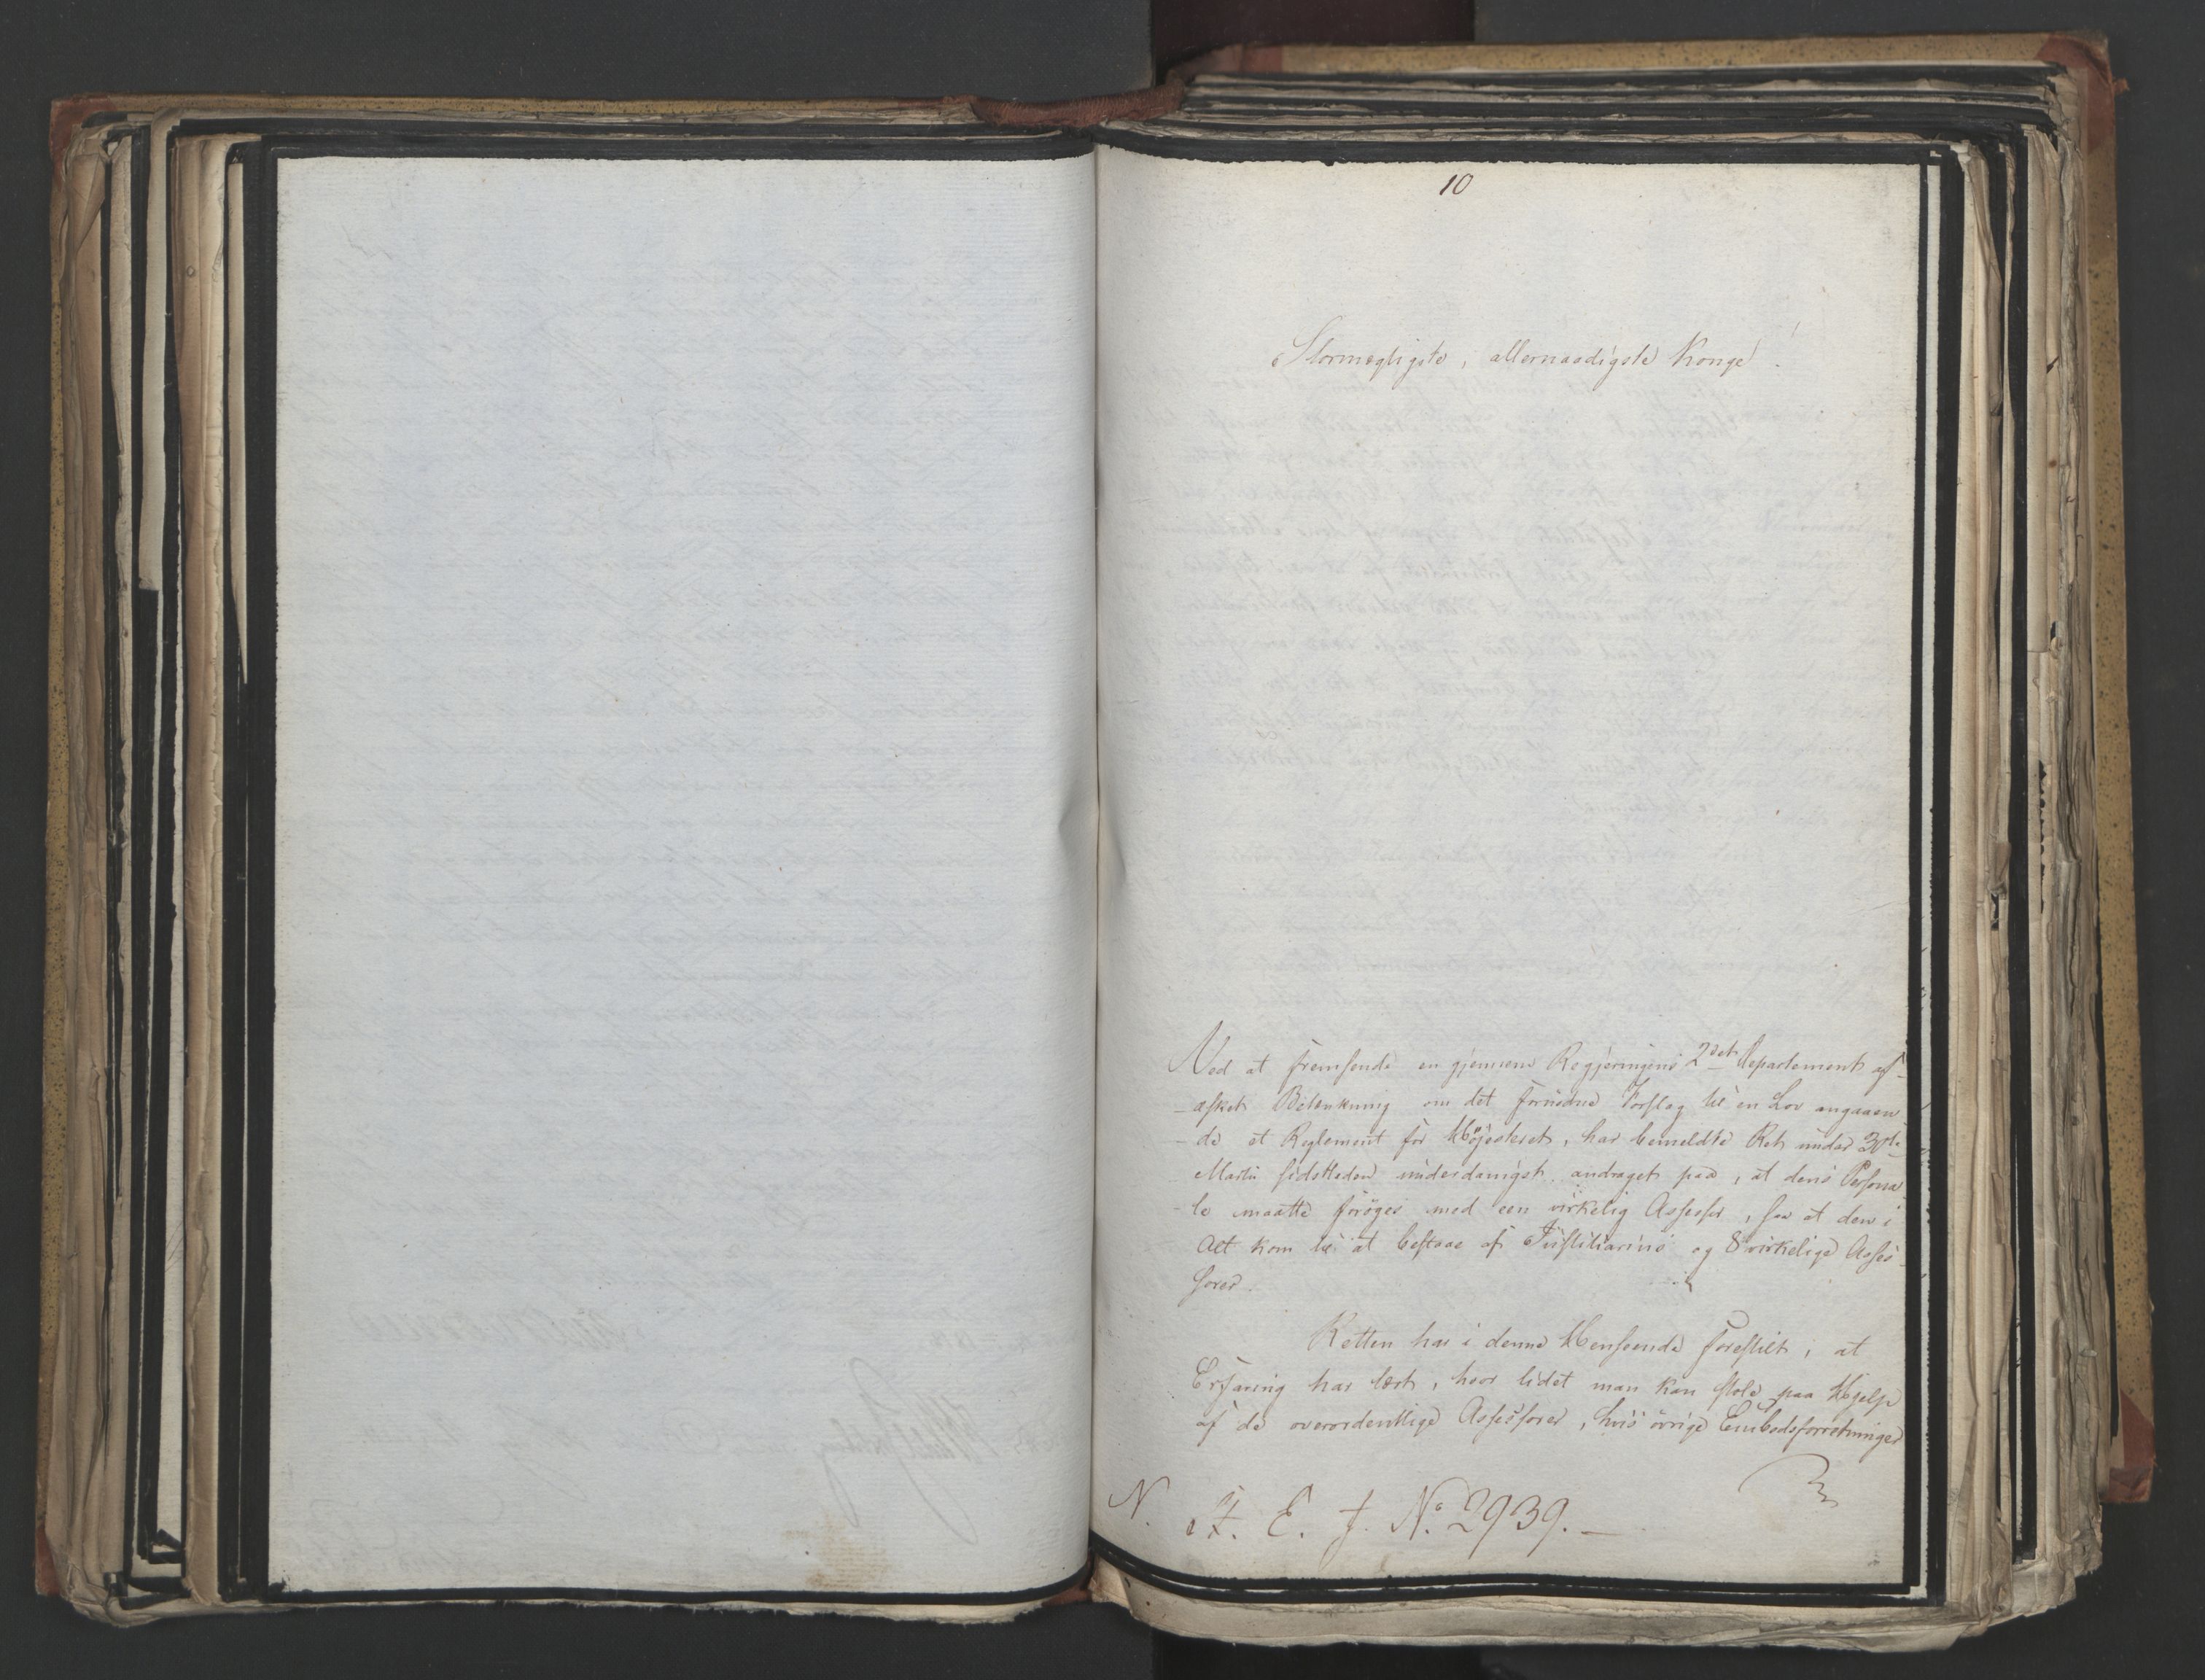 10
Stormægtigste, allernaadigste Konge!
Ved at fremsende en gjennem Regjeringens 2det Departement af-
-æsket Betænkning om det foreviste Forslag til en Lov angaaen
-de et Reglement for Höjesteret, har bemeldte Ret under 30te
Martii sidstleden underdanigst andraget paa, at dens Persona-
-le maatte foröges med een virkelig Assessor, saa at den i
Alt kom til at bestaae af Justitiarius og 8 virkelige Asses-
sorer.
Retten har i denne Henseende forestilt, at
Erfaring har lært, hvor lidet man kan stole paa Hjelp
af de overordentlige Assessorer, hvis övrige Embedsforretninger
N. E. J. No. 2939. —